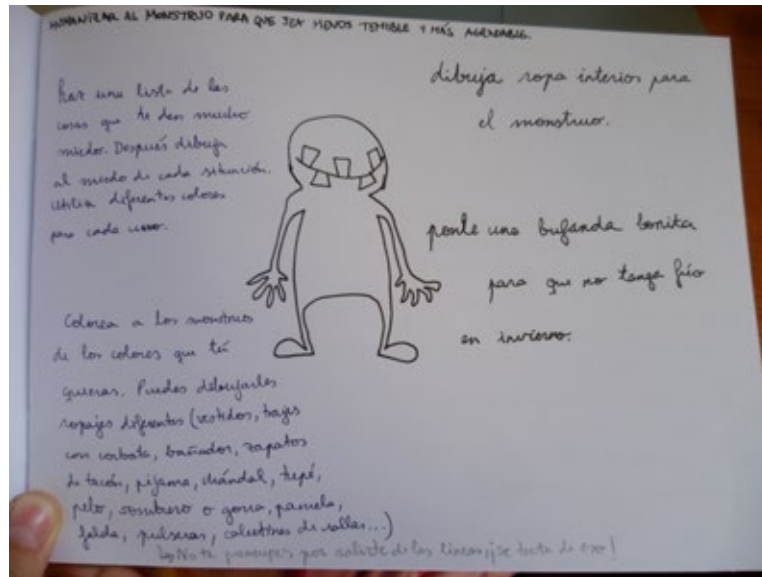 HUMANIZAR AL MONSTRUO PARA QUE SEA MENOS TEMIBLE Y MÁS AGRADABLE.
haz una lista de las
cosas que te den mucho
miedo. Después dibuja
al miedo de cada situación.
Utiliza diferentes colores
para cada uno.
Colorea a los monstruos
de los colores que tú
quieras. Puedes dibujarles
ropajes diferentes (vestidos, trajes
con corbata, bañador, zapatos
de tacón, pijama, chándal, tupé,
pelo, sombrero o gorra, pamela,
falda, pulseras, calcetines de rallas...)
No te preocupes por salirte de las líneas, ¡se trata de eso!
dibuja ropa interior para
el monstruo.
ponle una bufanda bonita
para que no tenga frío
en invierno.